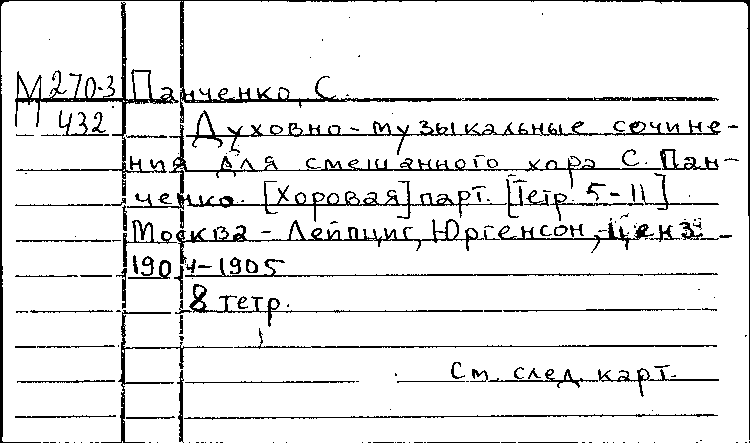 М 270-3 Панченко, С.
П 432 Духовно-музыкальные сочине-
ния для смешанного хора С. Пан-
ченко. [Хоровая] парт. [Тетр 5-11]
Москва - Лейпциг, Юргенсон, ценз.
1904-1905
8 тетр.
См. след. карт.